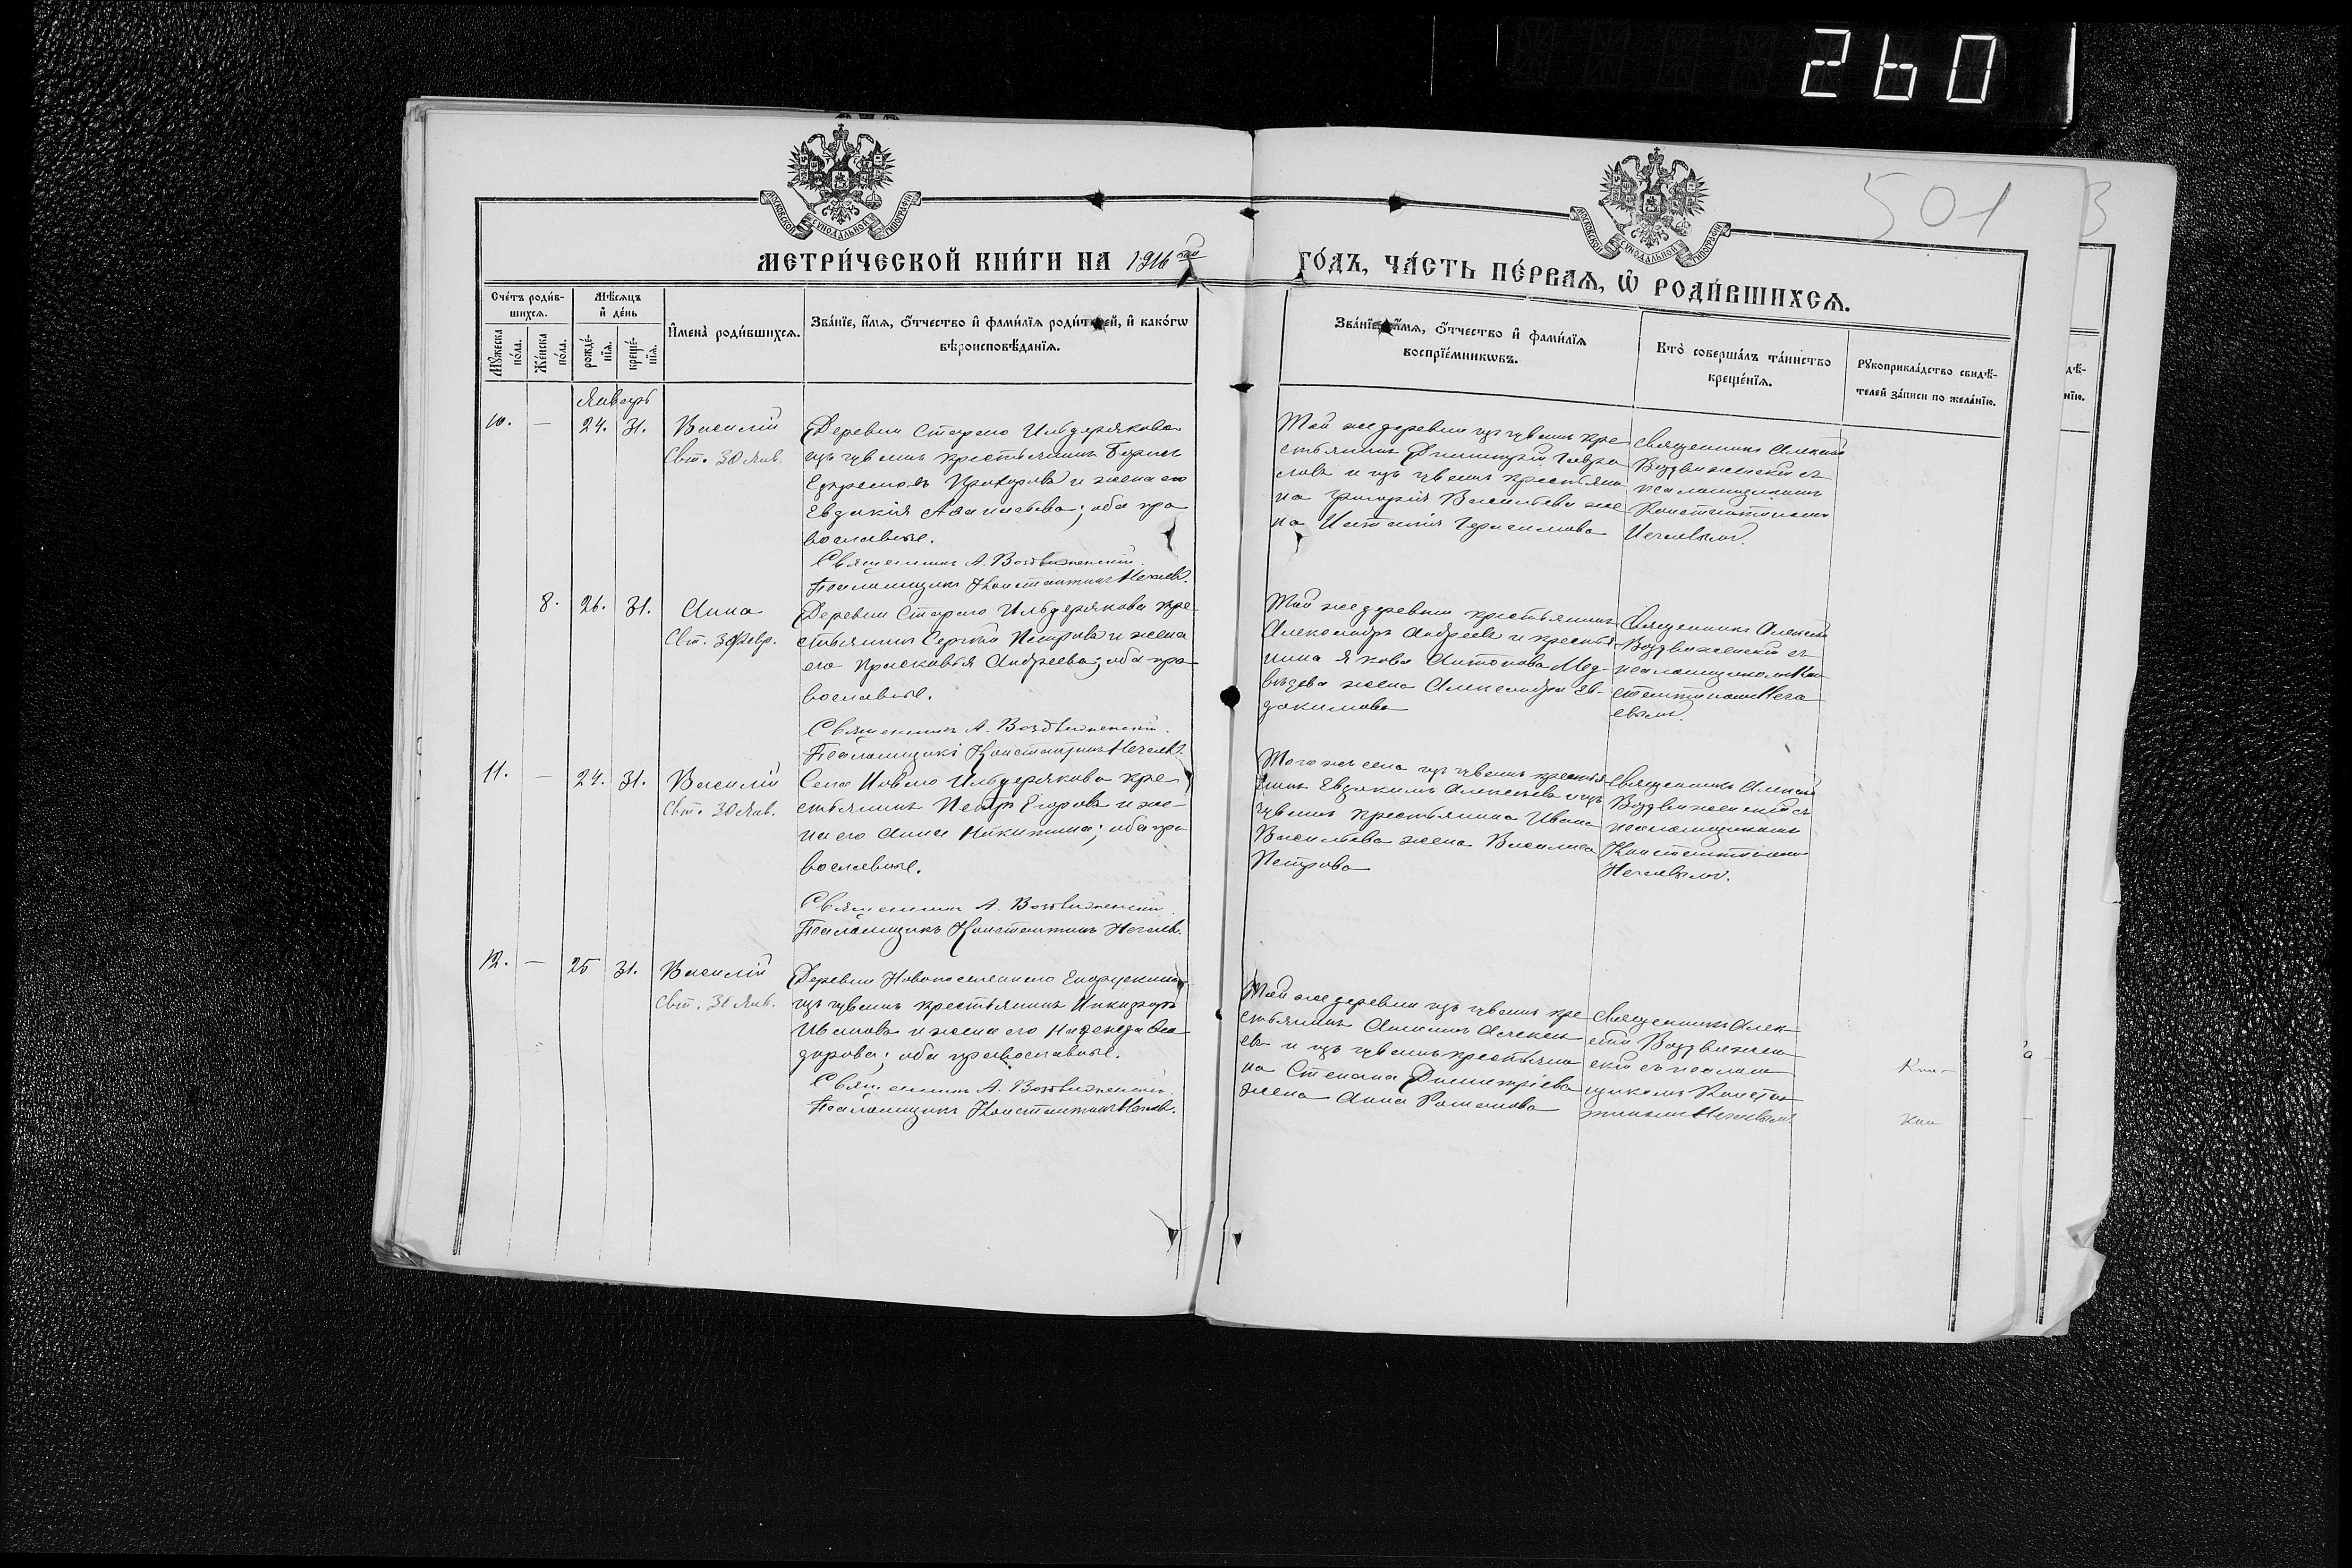 260
501
3
МОСКОВСКОЙ СΥНОДАЛЬНОЙ ТИПОГРАФІИ
МОСКОВСКОЙ СΥНОДАЛЬНОЙ ТИПОГРАФІИ
МЕТРИ́ЧЕСКОЙ КНИ́ГИ НА 1916 ый
ГО́ДЪ, ЧА́СТЬ ПЕ́РВАѦ, Ѡ҆ РОДИ́ВШИХСѦ.
Сче́тъ роди́в-
шихсѧ.
Мꙋ́жеска по́ла.
Же́нска по́ла.
Мѣ́сѧцъ и҆ де́нь
рожде́-нїѧ.
креще́-нїѧ.
И҆мена̀ роди́вшихсѧ.
Зва́нїе, и҆́мѧ, ѻ҆́тчество и҆ фами́лїѧ роди́телей, и҆ како́гѡ
вѣроисповѣ́данїѧ.
Зва́нїе, и҆́мѧ, ѻ҆́тчество и҆ фами́лїѧ
воспрїе́мникѡвъ.
Кто̀ соверша́лъ та́инство
креще́нїѧ.
Рꙋкоприкла́дство свидѣ́-
телей за́писи по жела́нїю.
Январь
10. — 24. 31. Василій
Свт. 30 Янв.
Деревни Стараго Ильдерякова
изъ чувашъ крестьянинъ Борисъ
Прохоровъ и жена его
Евдокія Аѳанасьева; оба пра
вославные.
Священникъ А. Воздвиженскій.
Псаломщикъ Константинъ Нечаевъ.
Той же деревни изъ чувашъ кре
стьянинъ Димитрій Гаври
ловъ и изъ чувашъ крестьяни
на Григорія Васильева же
на Герасимова
Священникъ Алексій
Воздвиженскій съ
псаломщикомъ
Константиномъ
Нечаевымъ.
8. 26. 31. Анна
Свт. 3 Февр.
Деревни Стараго Ильдерякова кре-
стьянинъ Сергѣй Петровъ и жена
его Прасковья Андреева; оба пра
вославные.
Священникъ А. Воздвиженскій.
Псаломщикъ Константинъ Нечаевъ.
Той же деревни крестьянинъ
Александръ Андреевъ и крестья
нина Якова Антонова Мед-
вѣдева жена Александра Ев-
докимова
Священникъ Алексій
Воздвиженскій съ
псаломщикомъ Кон
стантиномъ Неча
евымъ.
11. — 24. 31. Василій
Свт. 30 Янв.
Села Новаго Ильдерякова кре
стьянинъ Петръ Егоровъ и же-
на его Анна Никитина; оба пра
вославные.
Священникъ А. Воздвиженскій.
Псаломщикъ Константинъ Нечаевъ.
Того же села изъ чувашъ крестья
нинъ Евдокимъ Алексѣевъ и изъ
чувашъ крестьянина Ивана
Васильева жена Василиса
Петрова
Священникъ Алексій
Воздвиженскій съ
псаломщикомъ
Константиномъ
Нечаевымъ.
12. — 25 31. Василій
Свт. 31 Янв.
Деревни Новопоселеннаго
изъ чувашъ крестьянинъ Никифоръ
Ивановъ и жена его Надежда Ѳео
дорова; оба православные.
Священникъ А. Воздвиженскій.
Псаломщикъ Константинъ Нечаевъ.
Той же деревни изъ чувашъ кре
стьянинъ Алексѣ
евъ и изъ чувашъ крестьяни
на Степана Димитріева
жена Анна Романова
Священникъ Алек-
сій Воздвижен
скій съ псалом
щикомъ Констан
тиномъ Нечаевымъ.